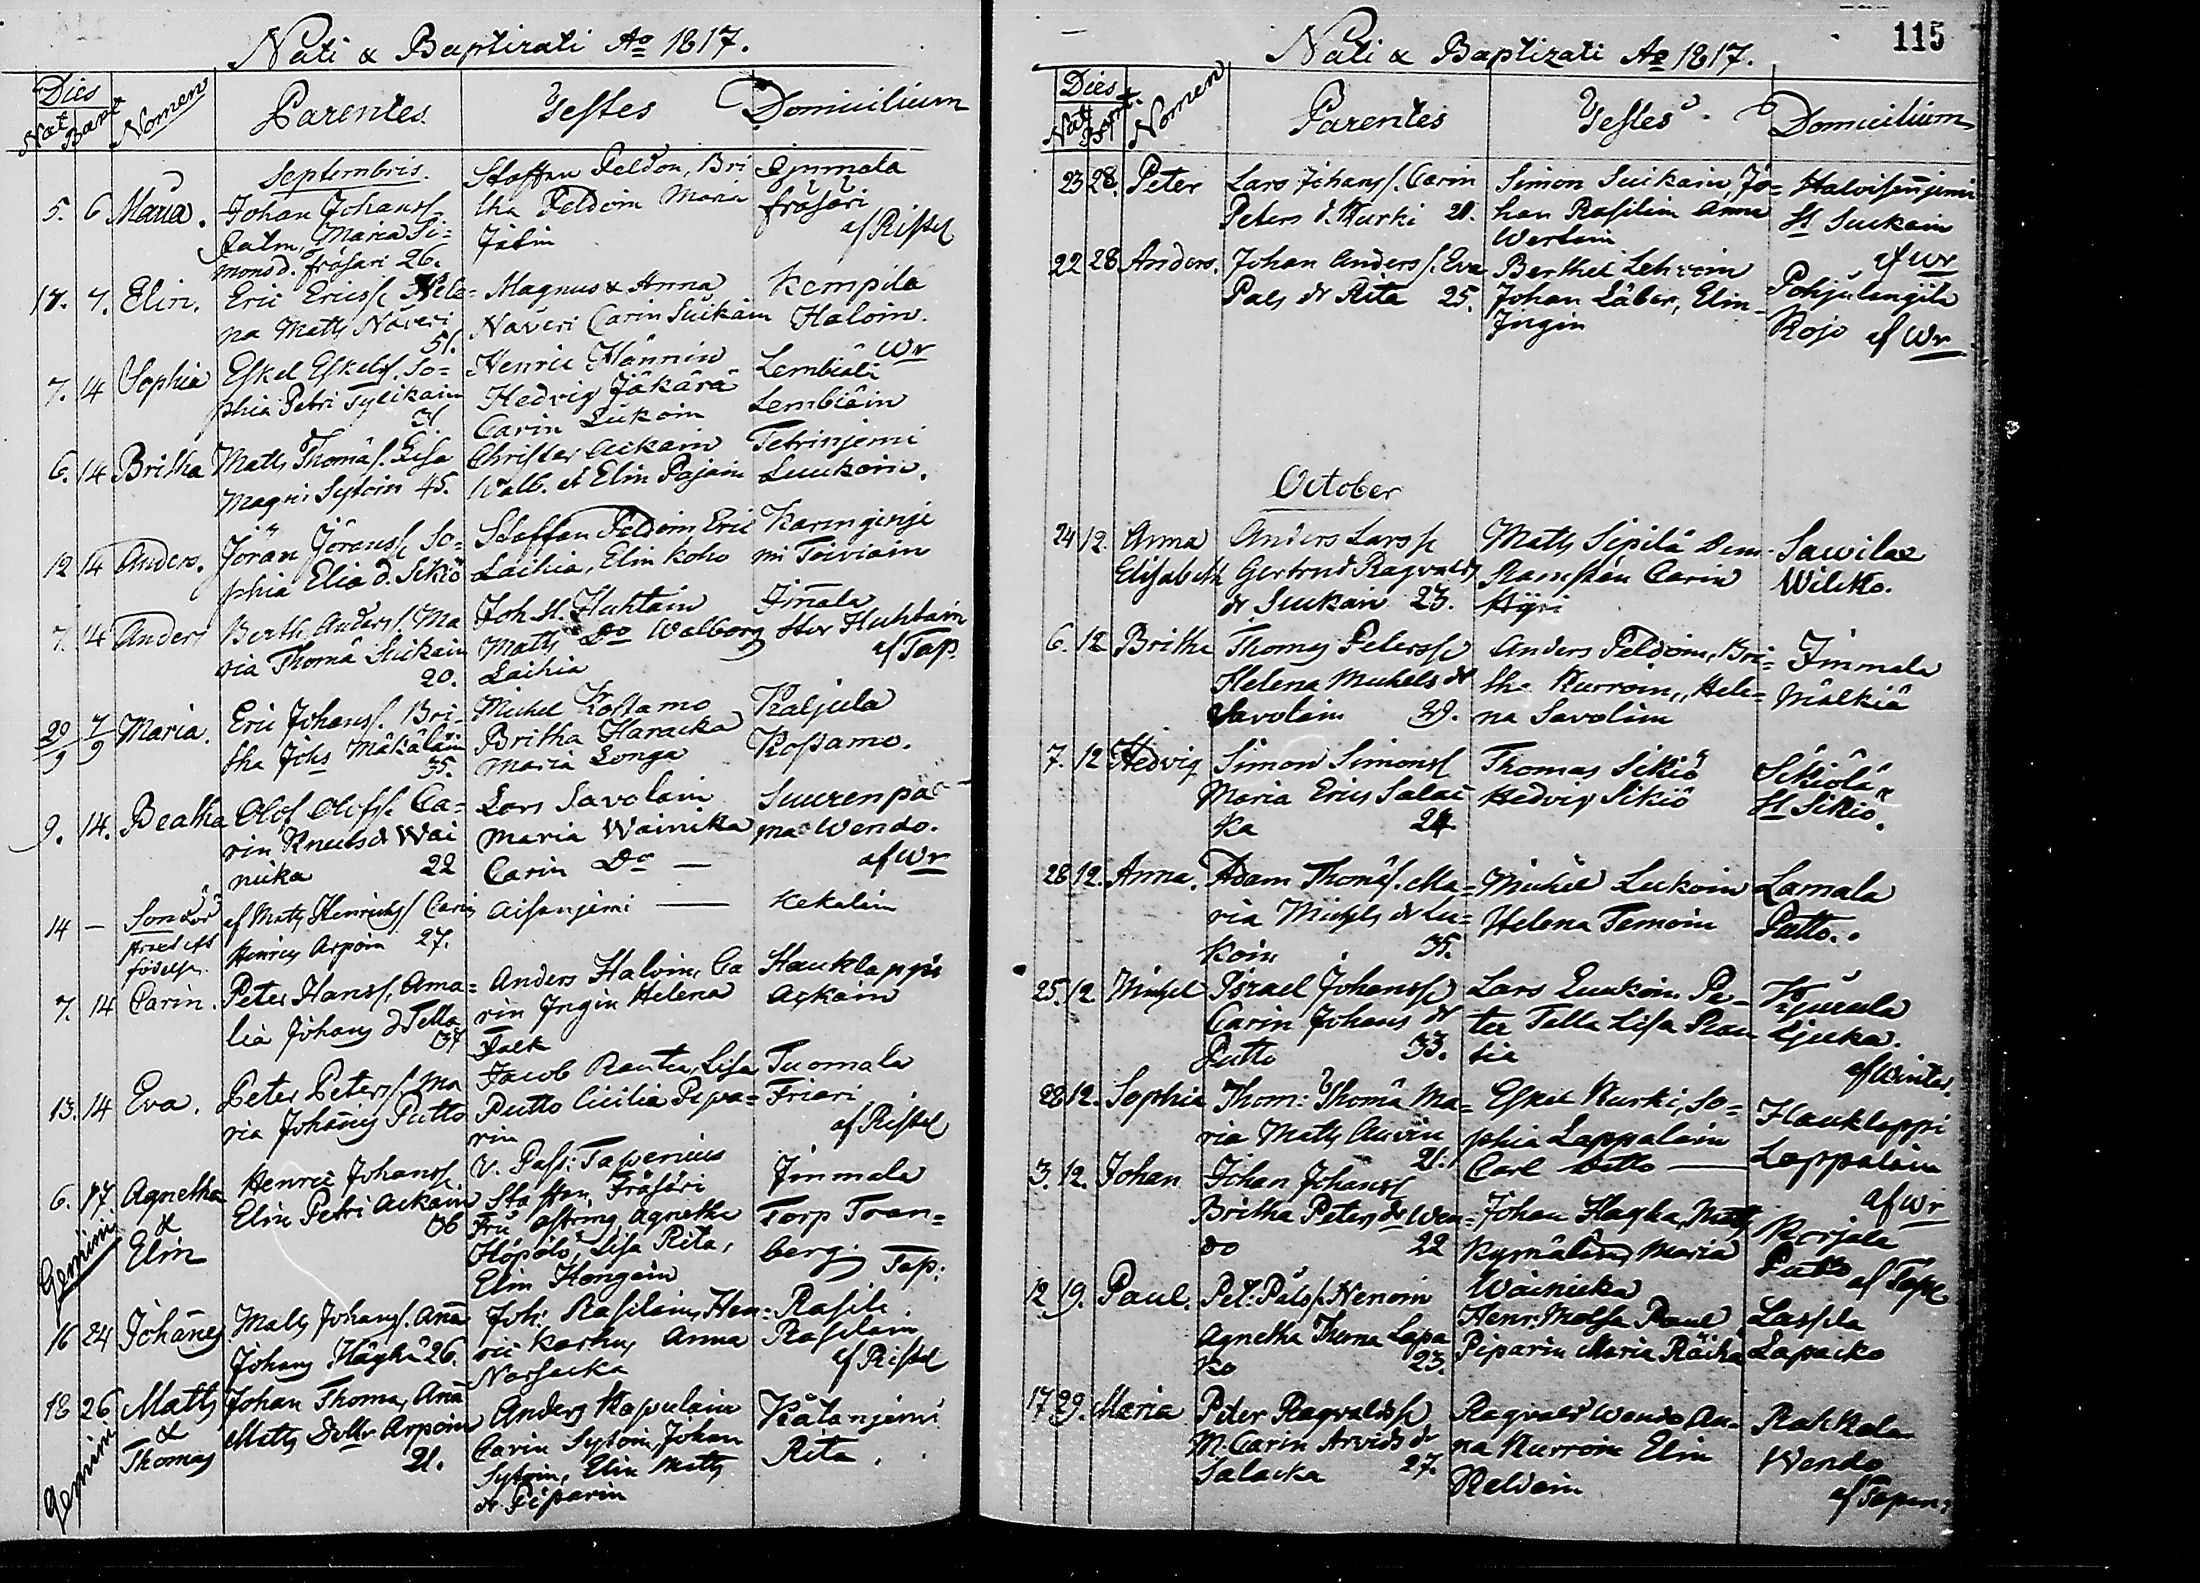 Nati & Baptizati Ao 1817.
Dies
Nat Bapt Nomen Parentes. Testes Domicilium
Septembris.
5. 6 Maria. Johan Johanss. Maria Si=
monsd. Fräsari 26.
Staffan Peldon, Bri
tha Peldoin Maria
Jätin
Fräsari
af Ristel
17. 7. Elin. Eric Ericss. Hele=
na Matts Näveri
51.
Magnus & Anna
Näveri Carin Suikain
Kempila
Haloin.
Wr
7. 14 Sophia Eskel Eskelss. So=
phia Petri Tylikain
31.
Henric Hännin
Hedvig Jäkärä
Carin Lukoin
Lembiäli
Lembiäin
6. 14 Britha Matts Thomäs. Lisa
Magni Sytoin 45.
Christer Aikain
Walb. et Elin Pajain
Tetrinjemi
Luukoin.
12 14 Anders. Jöran Jöranss. So=
phia Elia d. Sikiö
Staffan Peldoin Eric
Laihia, Elin Koho
Karinginje
mi Toiviain
7. 14 Anders Berth. Anderss. Ma
ria Thomä Suikain
20.
Joh. H. Huhtain
Matts Do Walborg
Laihia
Huhtain
af Tap.
29/9 7/9 Maria. Eric Johanss. Bri-
tha Johs Mäkäläin
35.
Michel Kostamo
Britha Haracka
Maria Longa
Kaljula
Kostamo.
9. 14. Beatha Olof Olofss. Ca=
rin Knuts dr Wai
nicka 22
Lars Savolain
Maria Wainika
Carin Do —
Suurenpää-
Wendo.
af Wr
14 — Son
födelse.
af Matts Henricss. Carin
Henrics Arpoin 27.
Aisanjemi —
Kekalin
7. 14 Carin. Peter Hanss. Ama=
lia Johans d Tella
37
Anders Halvin, Ca
rin Ingin Helena
Falk
Hauklappis
Ackain
13. 14 Eva. Peter Peterss. Ma
ria Johans Putto
Jacob Rautu, Lisa
Putto Cicilia Pipa=
rin
Tuomala
Friari
af Ristel
6. 17 Agnetha
&
Elin
Gemini
Henric Johanss.
Elin Petri Ackain
36
V. Past: Tapenius
Staffan Fräsäri
Fru Agnetha
Höpölö, Lisa Rita,
Elin Hongain
Jinmala
Torp Tran=
berg. Tap:
16 24 Johanes Matts Johanss. Ana
Johans Hägkä 26.
Joh: Rasilain, Hen=
ric Karhu, Anna
Narsacka
Rasila.
Rasilain
af Ristel
18 26 Matts
&
Thomas
Gemini
Johan Thoma, Ana
Matts Dottr Arpoin
21.
Anders Kapulain
Carin Sytoin, Johan
Sytoin, Elin Matts
dr Piparin
Kätänjemi
Rita.
115
Nati & Baptizati Ao 1817.
Dies
Nat Bapt. Nomen Parentes Testes Domicilium
23 28. Peter Lars Johanss. Carin
Peters d. Kurki 21.
Simon Suikain, Jo=
han Rasilain Anna
Wertain
Halvisenjemi
St Suikain
af Wr
22 28 Anders. Johan Anderss. Eva
Pals dr Rita 25.
Berthel Lehvoin
Johan Läber, Elin
Ingin
Pohjälangila
Rojo af Wr
October
24 12. Anna
Elisabeth
Anders Larss.
Gertrud Ragvalds
dr Suikain 23.
Matts Sipilä
Carin
Häyri
Sawilax
Wilkko.
6. 12 Britha Thomas Peterss.
Helena Michels dr
Savolain 39.
Anders Peldoin, Bri=
tha Kurroin, Hele=
na Savolain
Jinmala
Mälkiä
7. 12 Hedvig Simon Simonss.
Maria Erics Salai
ka 24.
Thomas Sikiö
Hedvig Sikiö
Sikiölä
St Sikiö.
28 12. Anna. Adam Thomäs. Ma=
ria Michels dr Lu=
koin 35.
Michel Lukoin
Helena Temoin
Lamala
Putto.
25. 12 Michel Israel Johanss.
Carin Johans dr
Putto 33.
Lars Luukoin, Pe-
ter Tella Lisa Rau
tia
Kjurula
Kjucka.
af Winter.
28 12. Sophia Thom: Thomä Ma=
ria Matts Auvin
21.
Eskel Kurki, So=
phia Lappalain
Carl Ditto —
Hauklappi
Lappalain
af Wr
3. 12. Johan Johan Johanss.
Britha Peters dr Wen=
do 22
Johan Hagka, Matts
Kymäläin, Maria
Wainicka
Korjala
Putto af Tape
12 19. Paul. Pet: Pålss. Nenoin
Agnetha Thoma Lapa
ko 23.
Henr: Molsa Paul
Piparin Maria Räihä
Lassila
Lapacko
17 29. Maria Peter Ragvaldss.
M. Carin Arvids dr
Salacka 27.
Ragvald Wendo, An-
na Kurroin Elin
Reldoin
Rakkola
Wendo
af Tapen: